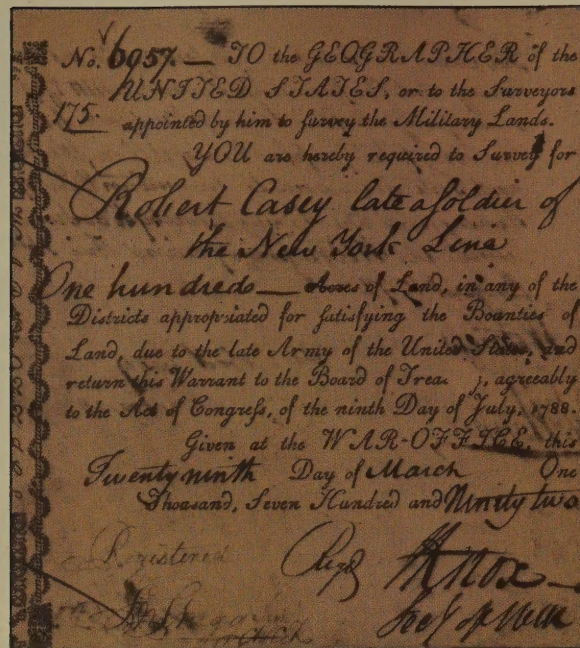 No. 6957.— TO the GEOGRAPHER of the
UNITED STATES, or to the Surveyors
175. appointed by him to survey the Military Lands.
YOU are hereby required to Survey for
Robert Casey late a Soldier of
the New York Line
One hundred — Acres of Land, in any of the
Districts appropriated for satisfying the Bounties of
Land, due to the late Army of the United States, and
return this Warrant to the Board of Trea y, agreeably
to the Act of Congress, of the ninth Day of July, 1788.
Given at the WAR-OFFICE, this
Twenty ninth Day of March One
Thousand, Seven Hundred and Ninety two
Registered
HKnox
Secy of War